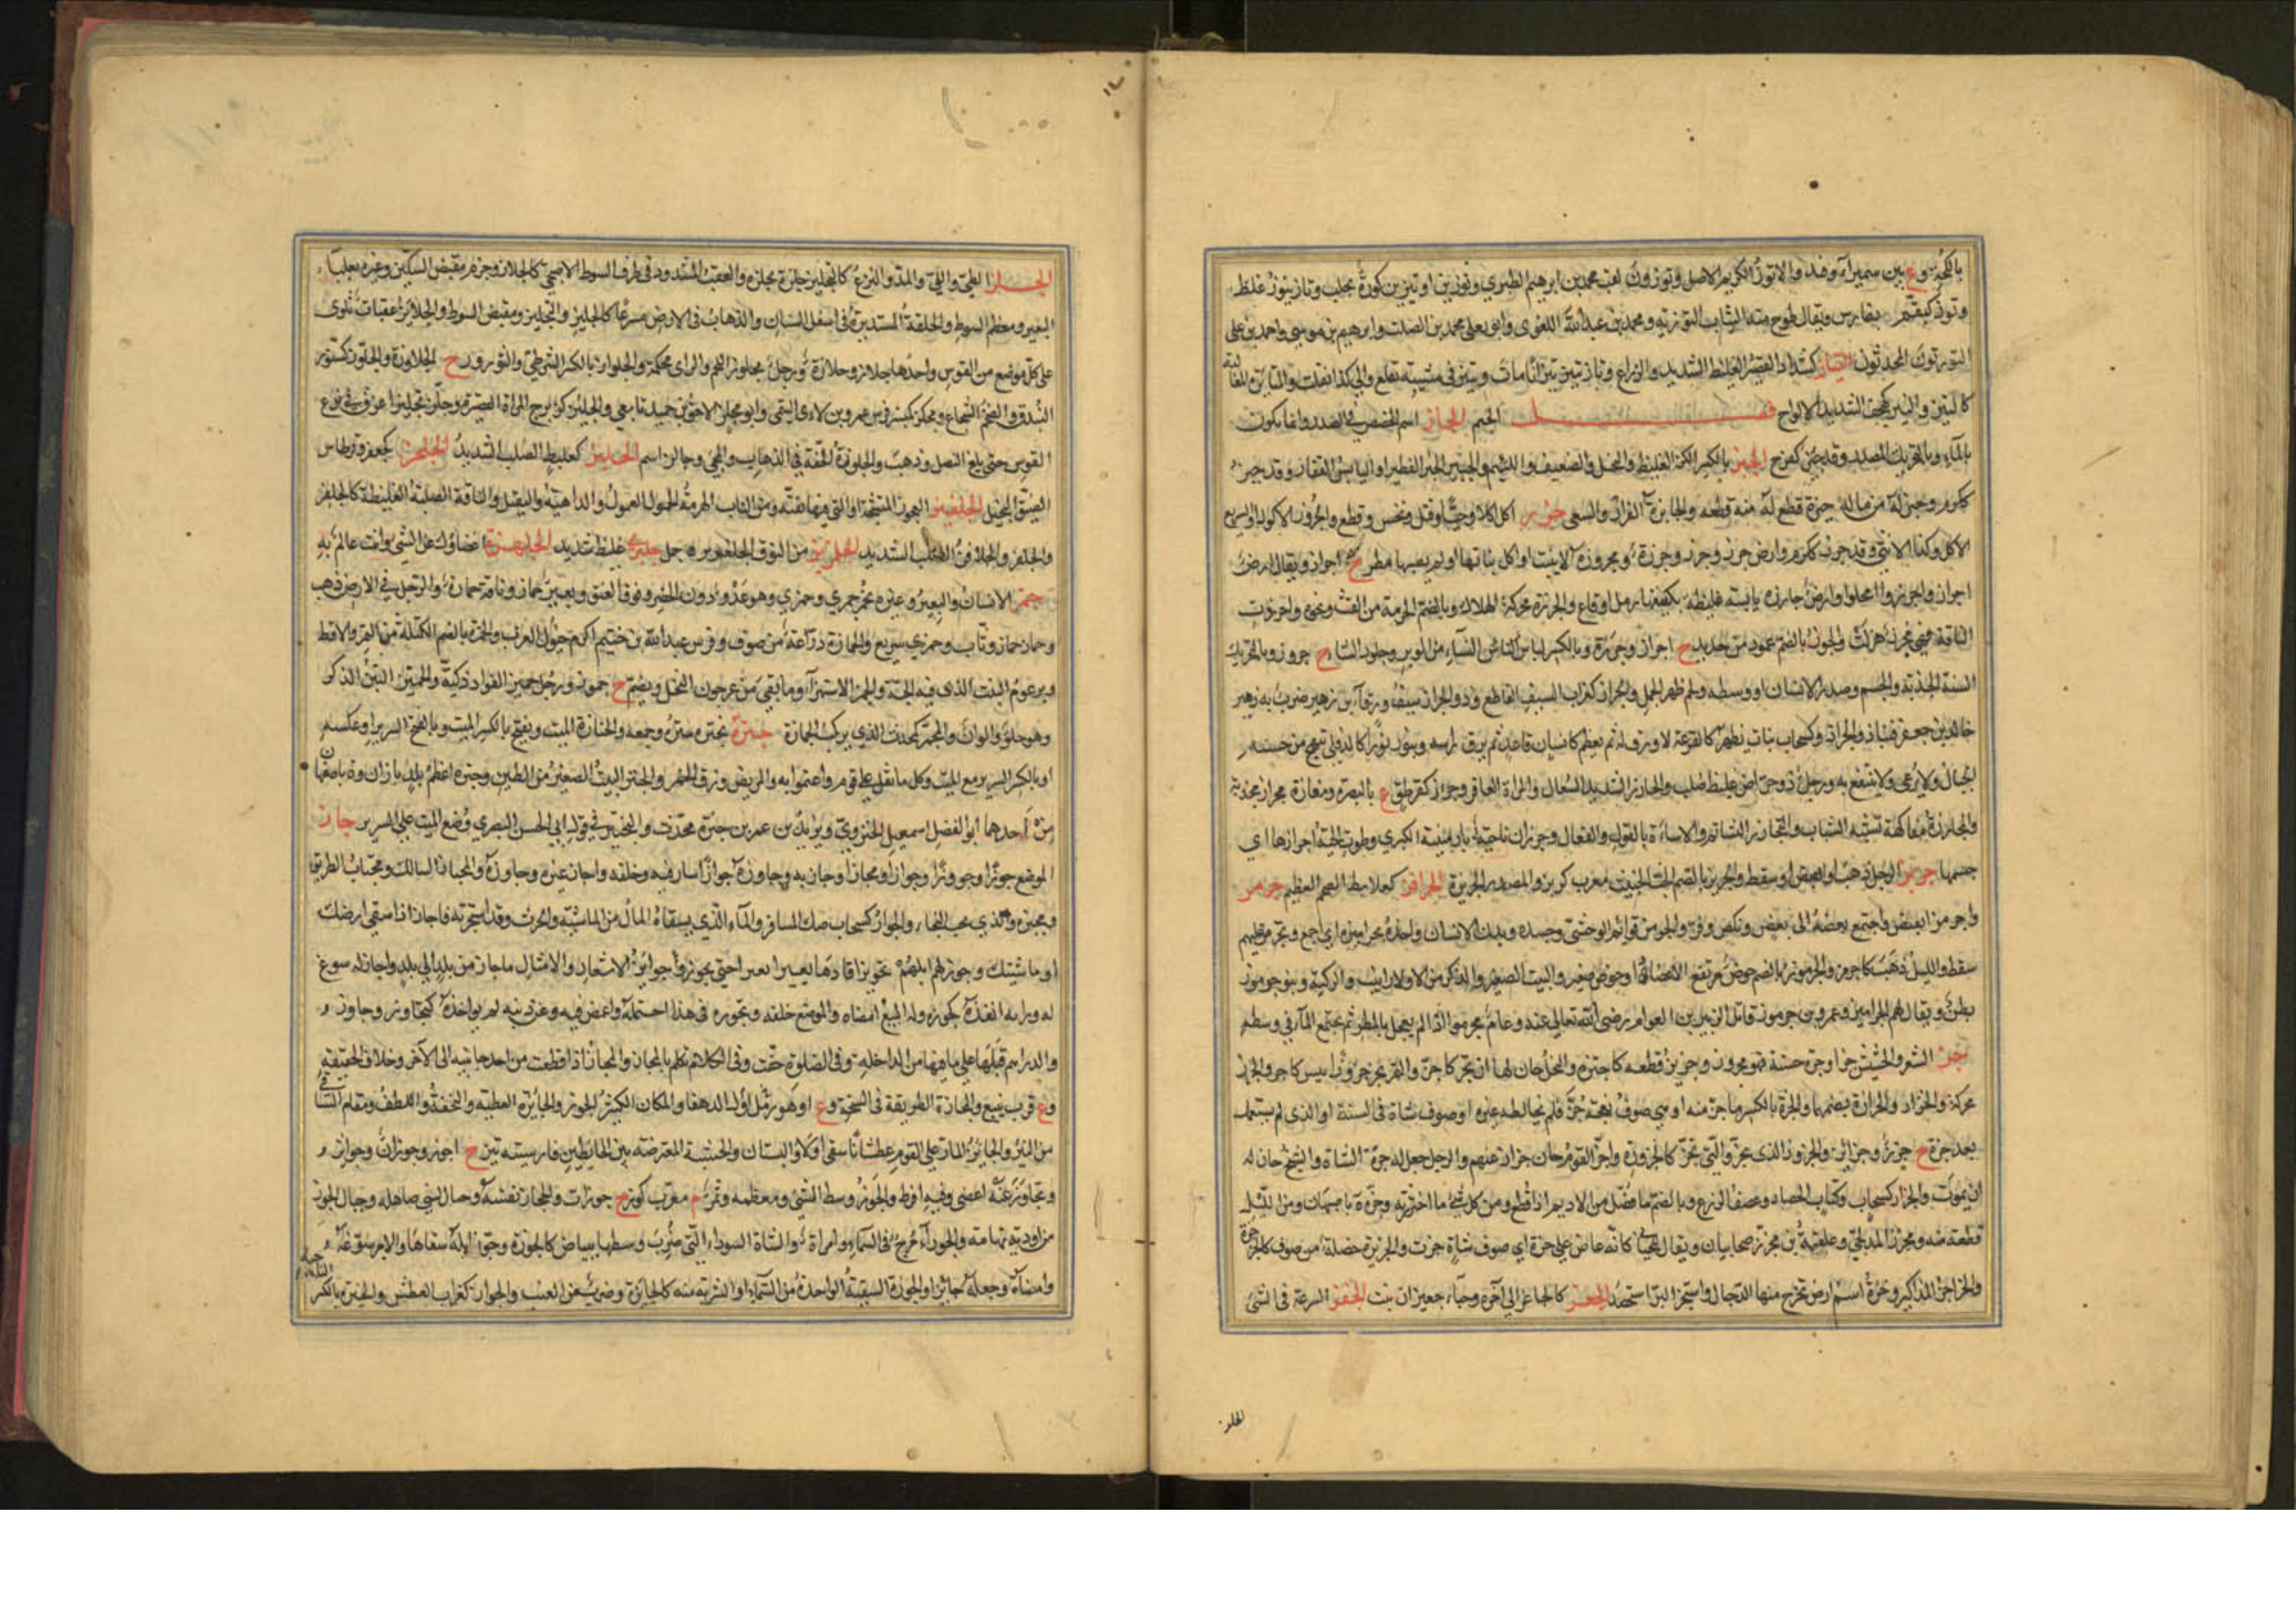 بين سميراء وفيد والاتوز الكريم الاصل وتوزون لقب محمد بن ابرهيم الطبري وتوزين او تيزين كورة بحلب وتاز يتوز غلظ
بفارس ويقال طوج منه الثياب التوزية ومحمد بن عبدالله اللغوي وابو يعلى محمد بن الصلت وابرهيم بن موسى واحمد بن على
التوزيون المحدثون التياز كشداد القصير الغليظ الشديد والزراع وتاز يتيز تيزانا مات
الشديد الالواح فصل الجيم الجاز اسم الغصص في الصدر وانما يكون
بالماء وبالتحريك المصدر وقد جئز كفرح الجبز بالكسر الكز الغليظ والبخيل والضعيف واللئيم والجبيز الخبز الفطير او اليابس القفار وقد جبز
ككرم وجبز له من ماله جبزة قطع له منه قطعة والجابزة الفرار والسعي جرز اكل اكلا وحيا وقتل ونخس وقطع والجروز الاكول او السريع
الاكل وكذا الانثى وقد جرز ككرم وارض جرز وجرز وجرزة ومجروزة لا تنبت او اكل نباتها او لم يصبها مطر ج اجراز ويقال ارض
اجراز واجرزوا امحلوا وارض جارزة يابسة غليظة يكتنفها رمل او قاع والجرزة محركة الهلاك وبالضم الحزمة من القت ونحوه واجرزت
الناقة فهي مجرز هزلت والجرز بالضم عمود من حديد ج اجراز وجرزة وبالكسر لباس النساء من الوبر وجلود الشاء ج جروز وبالتحريك
السنة الجدبة والجسم وصدر الانسان او وسطه ولحم ظهر الجمل والجراز كغراب السيف القاطع وذو الجراز سيف ورقاء بن زهير ضرب به زهير
خالد بن جعفر فنبا ذو الجراز وكسحاب نبات يظهر كالقرعة لا ورق له ثم يعظم كانسان قاعد ثم يرق راسه وينور نورا كالدفلى تبهج من حسنه
الجبال ولا يرعى ولا ينتفع به ورجل ذو جراز غليظ صلب والجارز الشديد السعال والمراة العاقر وجرز كقرطق ع بالبصرة ومفازة مجراز مجدبة
والمجارزة مفاكهة تشبه السباب والتجارز التشاتم والاساءة بالقول والفعال وجرزان ناحية بارمينية الكبري وطوت الحية اجرازها اي
جسمها جربز الرجل ذهب او انقبض او سقط والجربز بالضم الخب الخبيث معرب كربز والمصدر الجربزة الجرافز كعلابط الضخم العظيم جرمز
واجرمز انقبض واجتمع بعضه الى بعض ونكص وفر والجراميز قوائم الوحشي وجسده وبدن الانسان واخذه بجراميزه اي اجمع وتجرمز عليهم
سقط والليل ذهب كاجرمز والجرموز بالضم حوض مرتفع الاعضاد او حوض صغير والبيت الصغير والذكر من اولاد الذيب والركية وبنو جرموز
بطن ويقال لهم الجراميز وعمرو بن جرموز قاتل الزبير بن العوام رضي الله تعالى عنه وعام مجرمز اذا لم يعجل بالمطر ثم يجتمع الماء في وسطه
جز الشعر والحشيش جزا وجزة حسنة فهو مجزوز وجزيز قطعه كاجتزه والنخل حان لها ان تجز كاجز والتمر يجز جزوزا يبس كاجز والجزز
محركة والجزاز والجزازة بضمهما والجزة بالكسر ما جز منه او هي صوف نعجة جز فلم يخالطه غيره او صوف شاة في السنة او الذي لم يستعمل
بعد جزه ج جزز وجزائز والجزوز الذي يجز والتي تجز كالجزوزة واجز القوم حان جزاز غنمهم والرجل جعل له جزة الشاة والشيخ حان له
ان يموت والجزاز كسحاب وكتاب الحصاد وعصف الزرع وبالضم ما فضل من الاديم اذا قطع ومن كل شئ ما اجتززته وجزة باصبهان ومن الليل
قطعة منه ومجزز المدلجي وعلقمة بن مجزز صحابيان ويقال كانه عاض على جزة اي صوف شاة جزت والجزيزة خصلة من صوف كالجزجزة
والجزاجز المذاكير وجزة اسم ارض يخرج منها الدجال واستجز البر استحصد الجعز كالجاز الى آخره وحباء جعيزان نبت الجفز السرعة في المشي
الجلز
الجلز الطي واللي والمد والنزع كالتجليز جلزه يجلزه والعقب المشدود في طرف السوط الاصبحي كالجلاز وحزم مقبض السكين وغيره بعلباء
البعير ومعظم السوط والحلقة المستديرة في اسفل السنان والذهاب في الارض مسرعا كالجليز والتجليز ومقبض السوط والجلائز عقبات تلوى
على كل موضع من القوس واحدها جلاز وجلازة ورجل مجلوز اللحم والراى محكمه والجلواز بالكسر الشرطي والثؤرور ج الجلاوزة والجلوز كسنور
البندق والضخم الشجاع ومجلز كمنبر فرس عمرو بن لاءي التيمي وابو مجلز لاحق بن حميد تابعي والجليز كزبرج المراة القصيرة وجلز تجليزا اغرق في نزع
القوس حتى بلغ النصل وذهب والجلوزة الخفة في الذهاب والمجي وجالز اسم الجلبز كعلبط الصلب الشديد الجلحز كجعفر وقرطاس
الضيق البخيل الجلفزيز العجوز المتشنجة او التي فيها بقية ومن الناب الهرمة الحمول العمول والداهية والثقيل والناقة الصلبة الغليظة كالجلفز
والجلفز والجلافز الصلب الشديد من النوق جمل غليظ شديد الجلهزة اغضاؤك عن الشي وانت عالم به
جمز الانسان والبعير وغيره يجمز جمزا وجمزى وهو عدو دون الحضر وفوق العنق وبعير جماز وناقة جمازة والرجل في الارض ذهب
وحمار جماز وثاب وجمزى سريع والجمازة دراعة من صوف وفرس عبد الله بن خيثم اكرم خيول العرب والجمزة بالضم الكتلة من التمر والاقط
وبرعوم النبت الذي فيه الحبة والجمز الاستهزاء وما بقي من عرجون النخل ويضم ج جموز ورجل جميز الفؤاد ذكيه والجميز التين الذكر
وهو حلو والوان والمجمز كمحدث الذي يركب الجمازة جنزه يجنزه ستره وجمعه والجنازة الميت ويفتح بالكسر الميت وبالفتح السرير او عكسه
او بالكسر السرير مع الميت وكل ما ثقل على قوم واغتموا به والمريض وزق الخمر والجنز البيت الصغير من الطين وجنزة اعظم بلد باران وة باصفهان
من احدهما ابو الفضل اسمعيل الجنزوي ويزيد بن عمر بن جنزة محدث والتجنيز في قول ابي الحسن البصري وضع الميت على السرير جاز
الموضع جوزا وجووزا وجوازا ومجازا وجاز به وجاوزه جوازا سار فيه وخلفه واجاز غيره وجاوزه والمجتاز السالك ومجتاب الطريق
ومجيزه والذي يحب النجاء والجواز كسحاب صك المسافر والماء الذي يسقاه المال من الماشية والحرث وقد استجزته فاجاز اذا سقى ارضك
او ماشيتك وجوز لهم ابلهم تجويزا قادها بعيرا بعيرا حتى تجوز وجوائز الاشعار والامثال ما جاز من بلد الى بلد واجاز له سوغ
له ورايه انفذه كجوزه وله البيع امضاه والموضع خلفه وتجوز في هذا احتمله واغمض فيه وعن ذنبه لم يواخذه كتجاوز وجاوز و
والدراهم قبلها على ما فيها من الداخلة وفي الصلوة خفف وفي الكلام تكلم بالمجاز والمجاز اذا قطعت من احد جانبيه الى الآخر وخلاف الحقيقة
وع قرب ينبع والمجازة الطريقة في السبخة وع او هو رمل اول الدهناء والمكان الكثير الجوز والجائزة العطية والتحفة واللطف ومقام الساقي
من البئر والجائز المار على القوم عطشانا سقي او لا والبستان والخشبة المعترضة بين الحائطين فارسيته تير ج اجوز وجوزان وجوائز و
وتجاوز عنه اغضى وفيه افرط والجوز وسط الشئ ومعظمه وثمر م معرب كوز ج جوزات والحجاز نفسه وجبال لبني صاهلة وجبال الجوز
من اودية تهامة والجوزاء برج في السماء وامراة والشاة السوداء التي ضرب وسطها ببياض كالجوزة وجوز ابله سقاها والامر سوغه و
وامضاه وجعله جائزا والجوزة السقية الواحدة من الماء او الشربة منه كالجائزة وضرب من العنب والجواز كغراب العطش والجيزة بالكسر